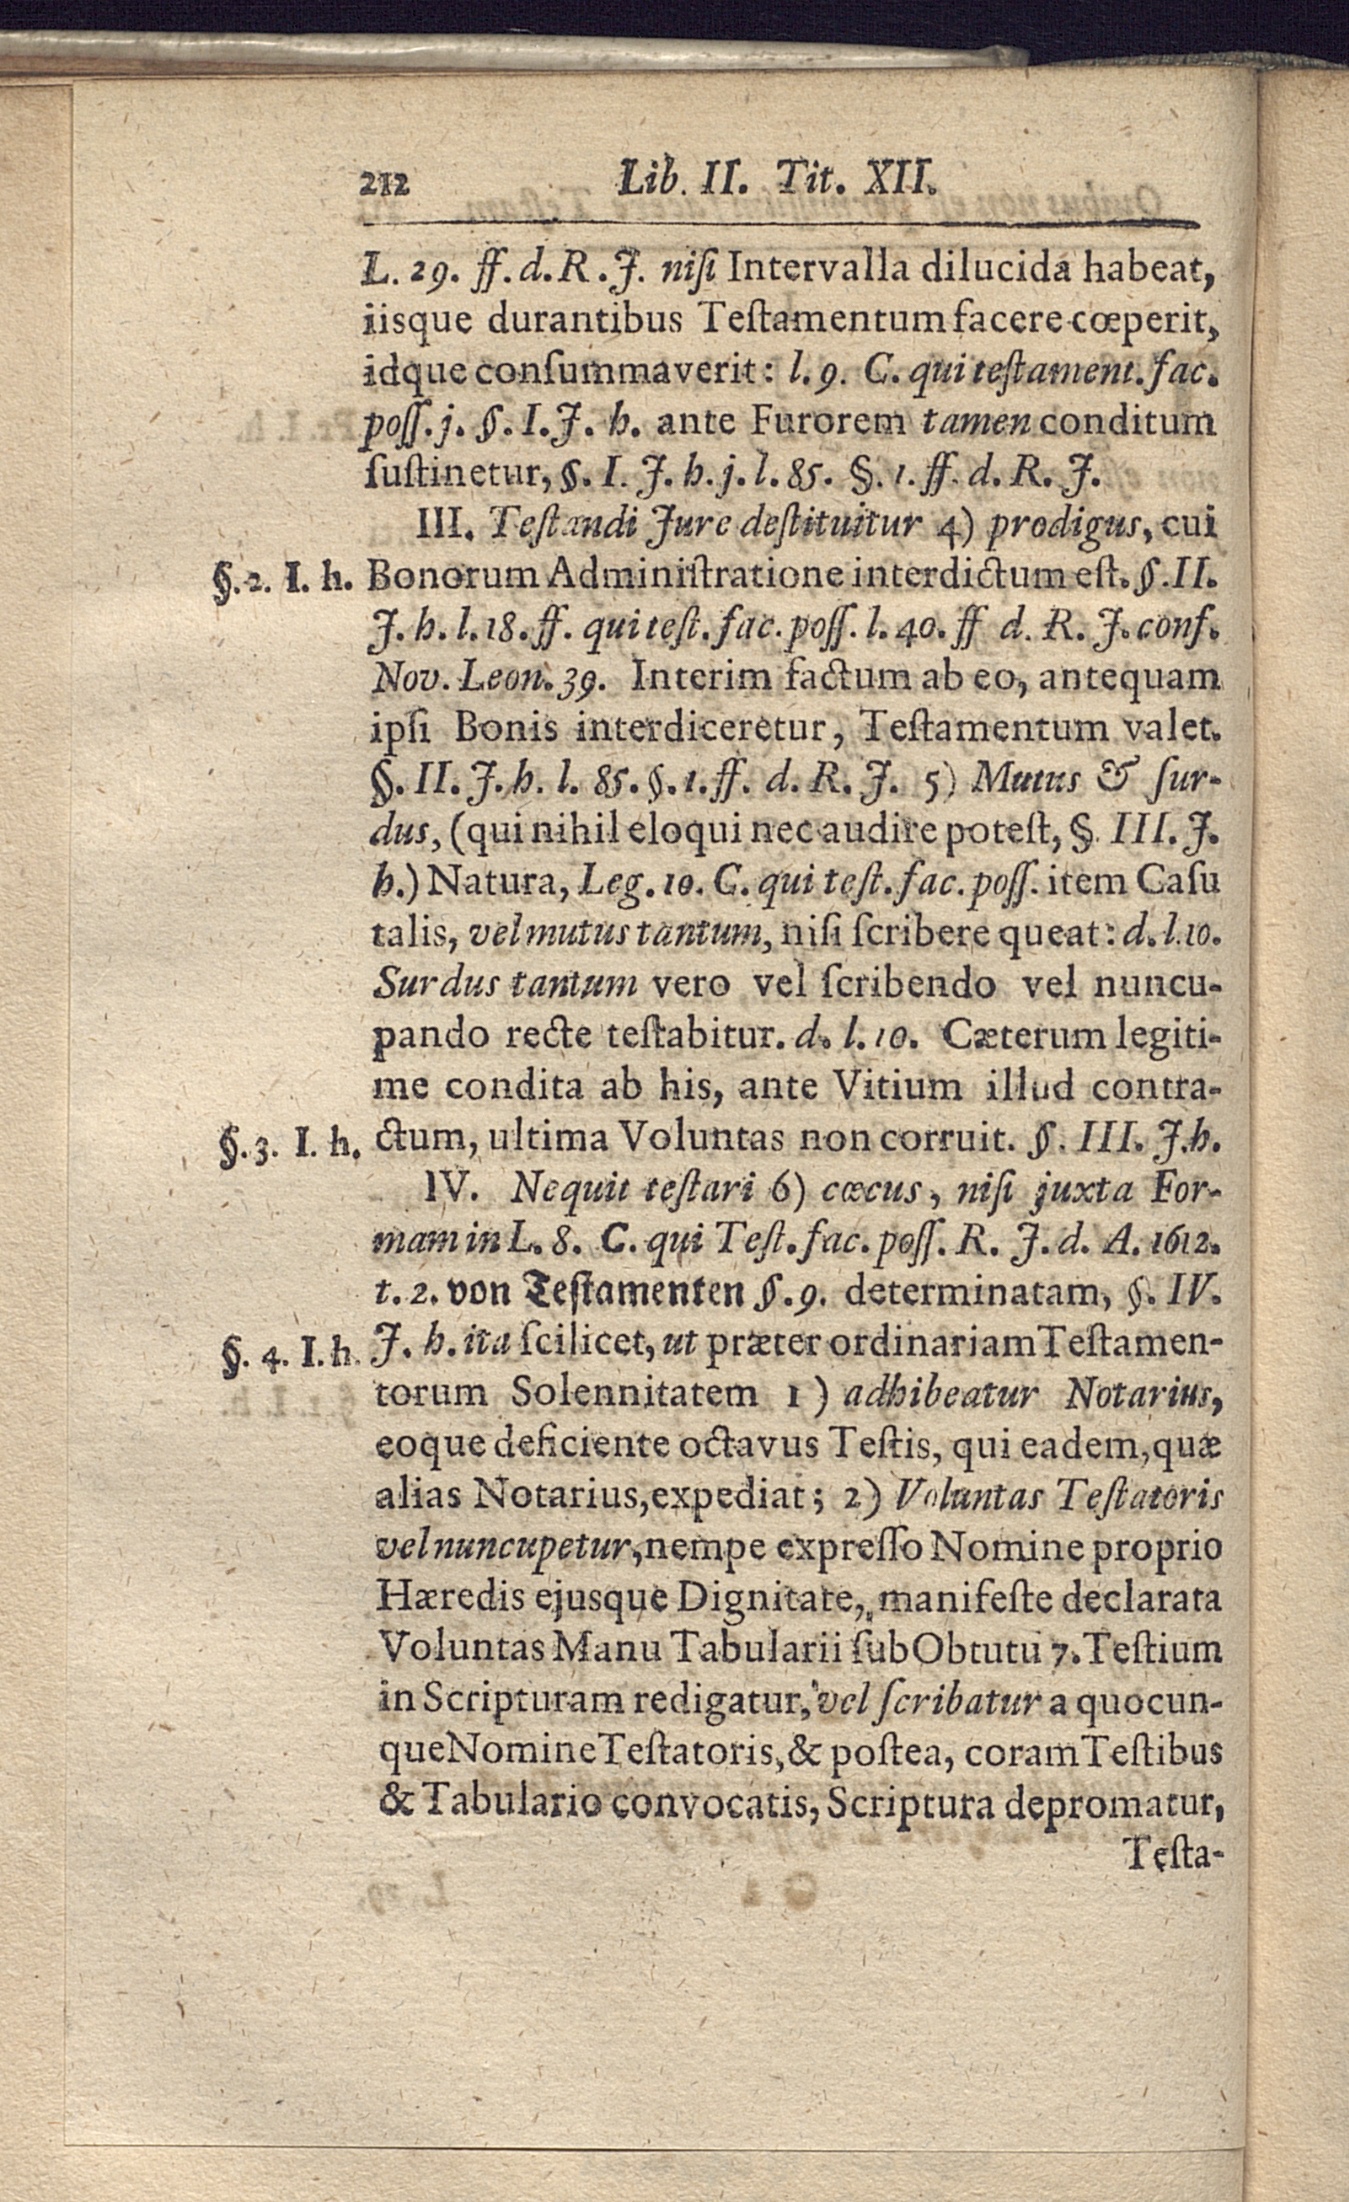 212 Lib. II. Tit. XII.
L. 29. ff. d. R. J. niſi Intervalla dilucida habeat,
iisque durantibus Teſtamentum facere cœperit,
idque conſummaverit: l. 9. C. qui teſtament. fac.
poſſ. j. §. I. J. h. ante Furorem tamen conditum
ſuſtinetur, §. I. J. h. j. l. 85. §. 1. ff. d. R. J.
III. Teſtandi Jure deſtituitur 4) prodigus, cui
§. 2. I. h. Bonorum Adminiſtratione interdictum eſt. §. II.
J. h. l. 18. ff. qui teſt. fac. poſſ. l. 40. ff d. R. J. conf.
Nov. Leon. 39. Interim factum ab eo, antequam
ipſi Bonis interdiceretur, Teſtamentum valet.
§. II. J. h. l. 85. §. 1. ff. d. R. J. 5) Mutus & ſur-
dus, (qui nihil eloqui nec audire poteſt, §. III. J.
h.) Natura, Leg. 10. C. qui teſt. fac. poſſ. item Caſu
talis, vel mutus tantum, niſi ſcribere queat: d. l. 10.
Surdus tantum vero vel ſcribendo vel nuncu-
pando recte teſtabitur. d. l. 10. Cæterum legiti-
me condita ab his, ante Vitium illud contra-
§. 3. I. h. ctum, ultima Voluntas non corruit. §. III. J. h.
IV. Nequit teſtari 6) cœcus, niſi juxta For-
mam in L. 8. C. qui Teſt. fac. poſſ. R. J. d. A. 1612.
t. 2. von Teſtamenten §. 9. determinatam, §. IV.
§. 4. I. h. J. h. ita ſcilicet, ut præter ordinariam Teſtamen-
torum Solennitatem 1) adhibeatur Notarius,
eoque deficiente octavus Teſtis, qui eadem, quæ
alias Notarius, expediat; 2) Voluntas Teſtatoris
vel nuncupetur, nempe expreſſo Nomine proprio
Hæredis ejusque Dignitate, manifeſte declarata
Voluntas Manu Tabularii ſub Obtutu 7. Teſtium
in Scripturam redigatur, vel ſcribatur a quocun-
que Nomine Teſtatoris, & poſtea, coram Teſtibus
& Tabulario convocatis, Scriptura depromatur,
Teſta-